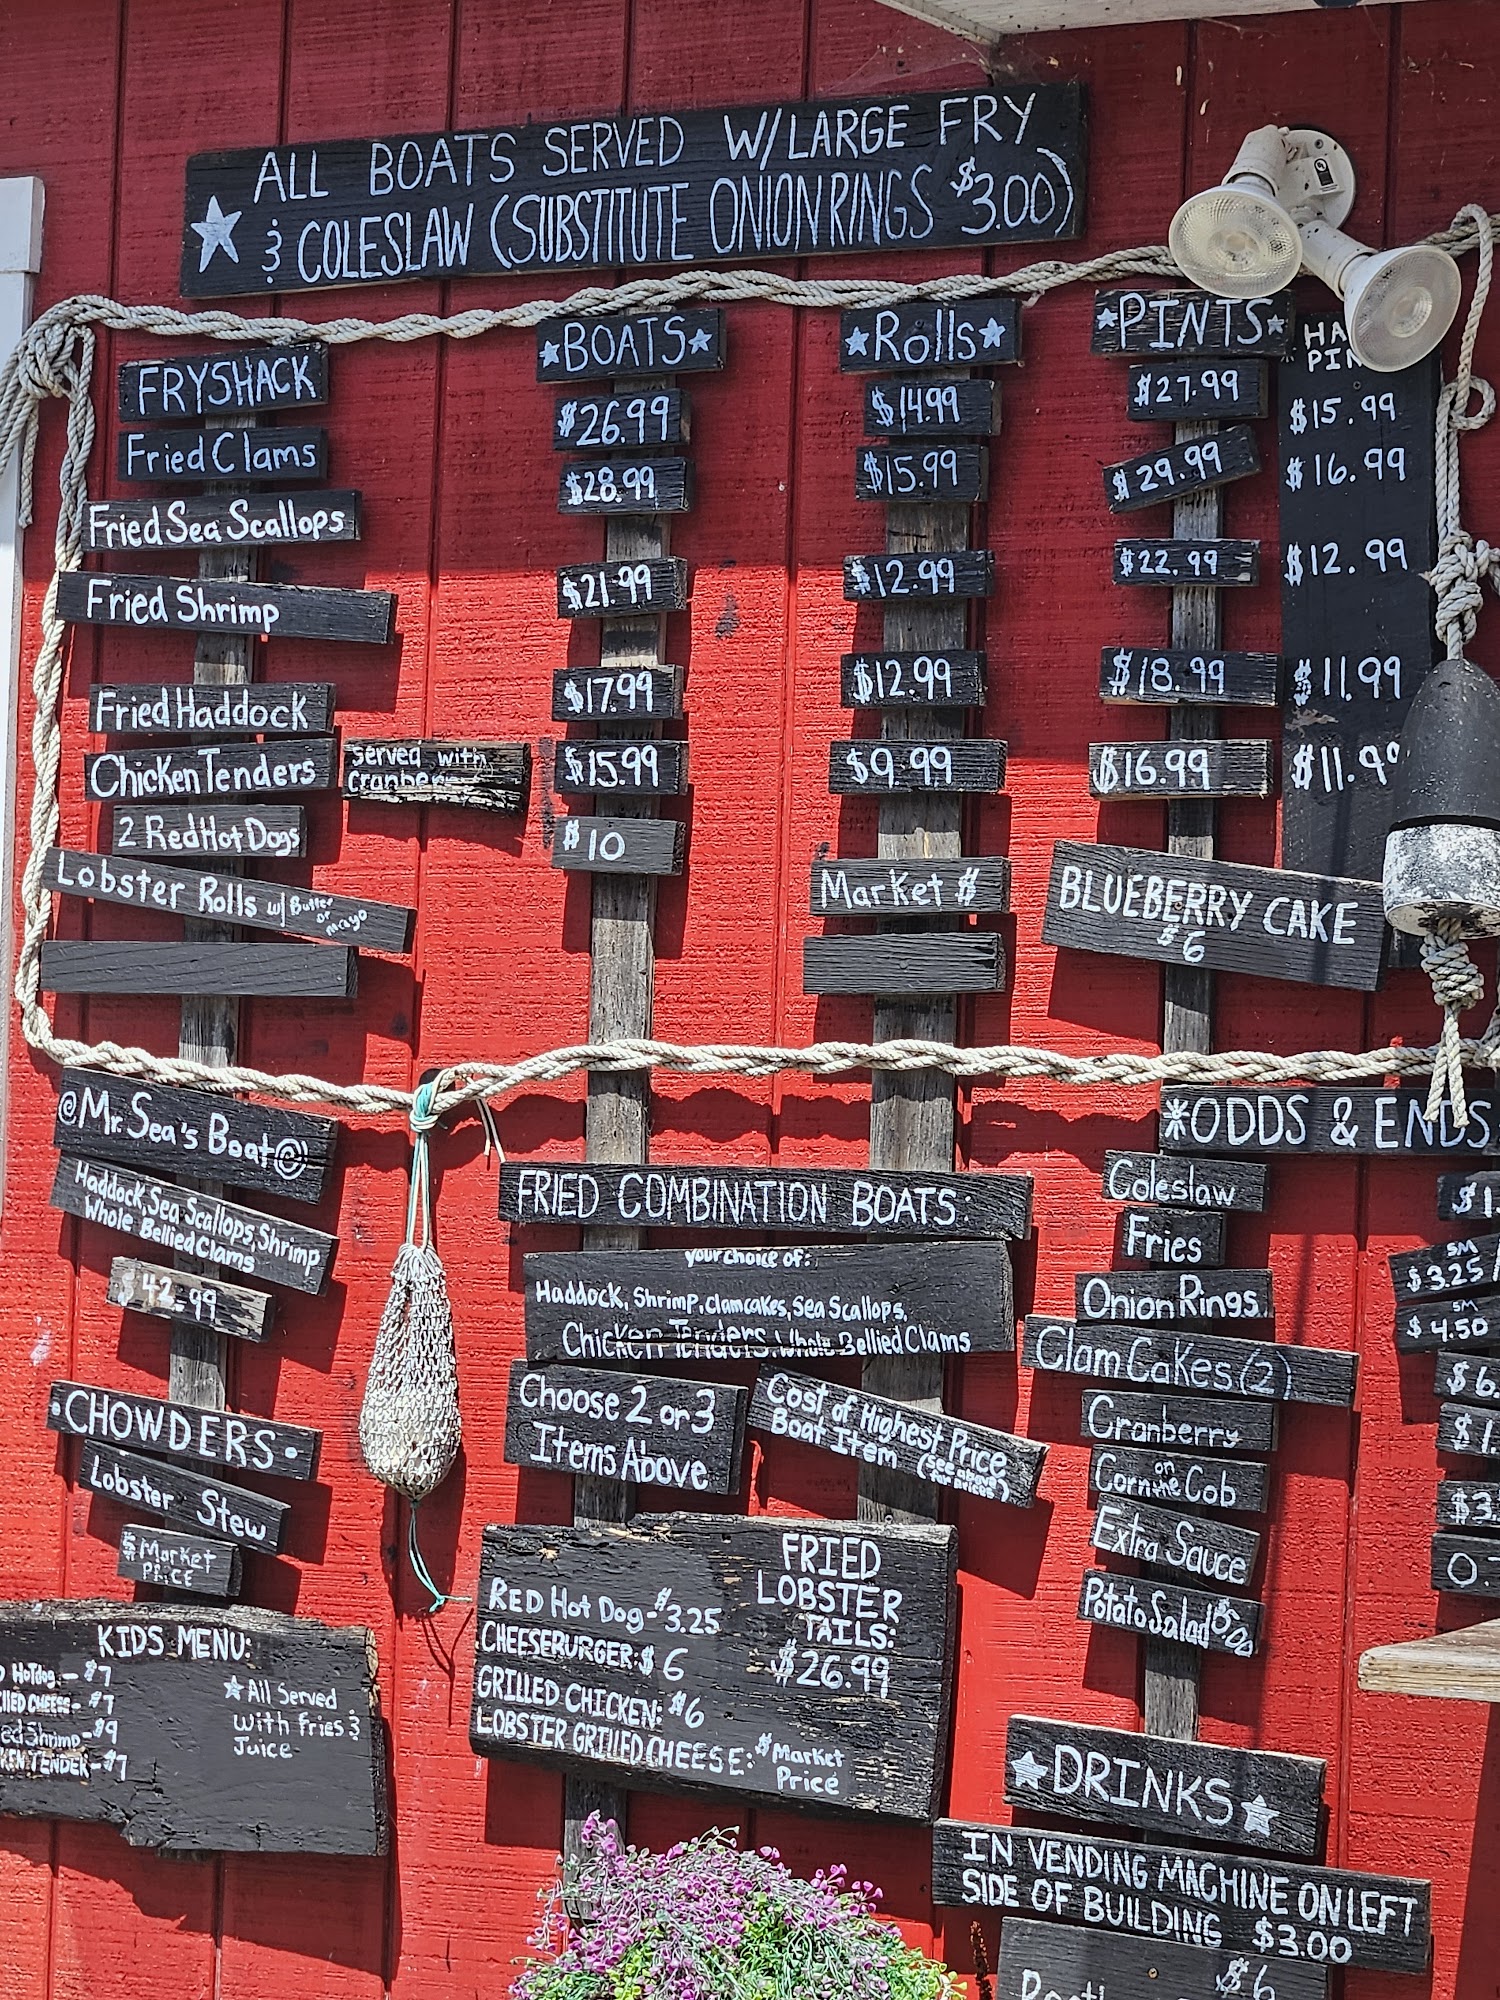 ALL BOATS SERVED W/LARGE FRY
& COLESLAW (SUBSTITUTE ONION RINGS $3.00)
FRYSHACK
BOATS
Rolls
PINTS
Fried Clams
$26.99
$14.99
$27.99
$15.99
Fried Sea Scallops
$28.99
$15.99
$29.99
$16.99
Fried Shrimp
$21.99
$12.99
$22.99
$12.99
Fried Haddock
$17.99
$12.99
$18.99
$11.99
Chicken Tenders
served with
$15.99
$9.99
$16.99
2 Red Hot Dogs
$10
Lobster Rolls w/ Butter
or
mayo
Market $
BLUEBERRY CAKE
$6
@Mr. Sea's Boat@
Haddock, Sea Scallops, Shrimp
Whole Bellied Clams
$42.99
CHOWDERS
Lobster Stew
$ Market
PRICE
KIDS MENU:
HoTdog - $7
CHEESE - $7
Shrimp - $9
TENDER - $7
All Served
with fries &
Juice
FRIED COMBINATION BOATS:
your choice of:
Haddock, Shrimp, clamcakes, Sea Scallops,
Chicken Tenders, Whole Bellied Clams
Choose 2 or 3
Items Above
Cost of Highest Price
Boat Item (see above
for prices)
RED Hot Dog - $3.25
CHEESEBURGER: $6
GRILLED CHICKEN: $6
LOBSTER GRILLED CHEESE: $ Market
Price
FRIED
LOBSTER
TAILS:
$26.99
ODDS & ENDS
Coleslaw
Fries
SM
$3.25
Onion Rings
SM
$4.50
Clam Cakes (2)
Cranberry
Corn on the Cob
Extra Sauce
Potato Salad $5.00
DRINKS
IN VENDING MACHINE ON LEFT
SIDE OF BUILDING $3.00
$6